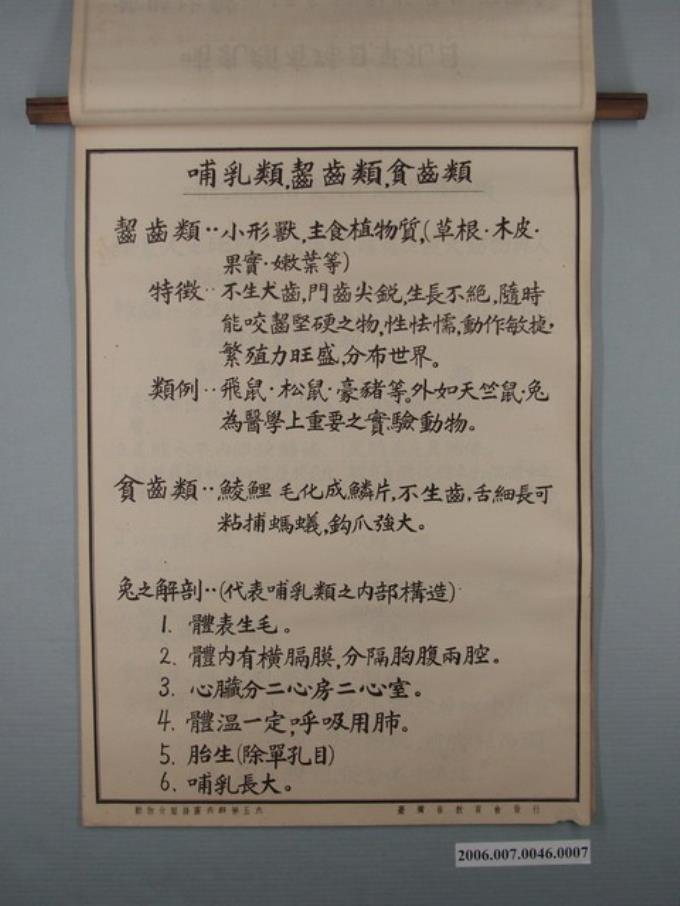 哺乳類,齧齒類,貧齒類
齧齒類‥小形獸,主食植物質,(草根·木皮·
果實·嫩葉等)
特徵‥不生犬齒,門齒尖銳,生長不絕,隨時
能咬齧堅硬之物,性怯懦,動作敏捷,
繁殖力旺盛,分布世界。
類例‥飛鼠·松鼠·豪豬等。外如天竺鼠·兔
為醫學上重要之實驗動物。
貧齒類‥鯪鯉 毛化成鱗片,不生齒,舌細長可
粘捕螞蟻,鈎爪強大。
兔之解剖‥(代表哺乳類之內部構造)
1. 體表生毛。
2. 體内有橫膈膜,分隔胸腹兩腔。
3. 心臟分二心房二心室。
4. 體溫一定,呼吸用肺。
5. 胎生(除單孔目)
6. 哺乳長大。
臺灣省教育會發行
2006.007.0046.0007